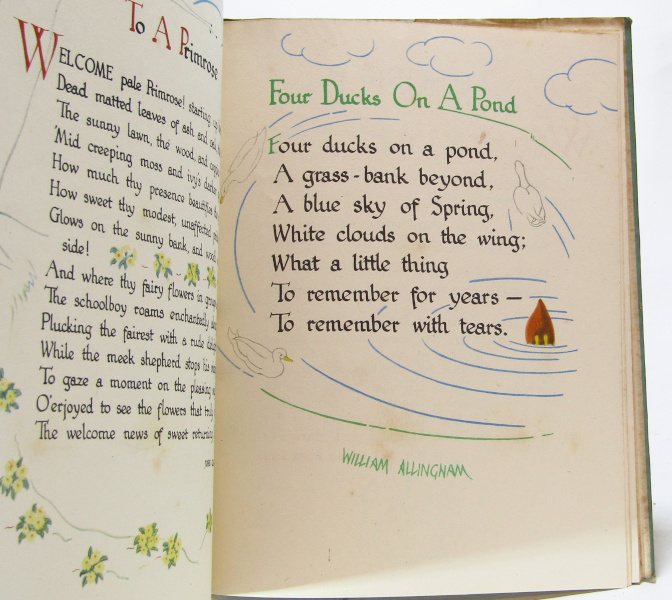 To A Primrose
WELCOME pale Primrose! starting up
Dead matted leaves of ash and oak
The sunny lawn, the wood, and
'Mid creeping moss and ivy's darker
How much thy presence beautifies
How sweet thy modest, unaffected
Glows on the sunny bank, and wood's
side!
And where thy fairy flowers in groups
The schoolboy roams enchantedly
Plucking the fairest with a rude
While the meek shepherd stops his
To gaze a moment on the pleasing
O'erjoyed to see the flowers that truly
The welcome news of sweet returning
Four Ducks On A Pond
Four ducks on a pond,
A grass-bank beyond,
A blue sky of Spring,
White clouds on the wing;
What a little thing
To remember for years —
To remember with tears.
WILLIAM ALLINGHAM